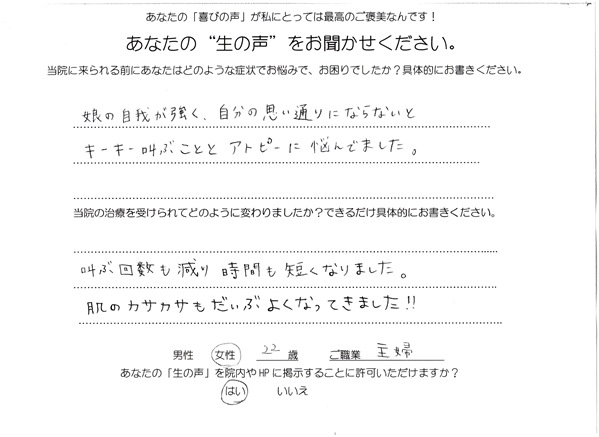 あなたの「喜びの声」が私にとっては最高のご褒美なんです!
あなたの“生の声”をお聞かせください。
当院に来られる前にあなたはどのような症状でお悩みで、お困りでしたか?具体的にお書きください。
娘の自我が強く、自分の思い通りにならないと
キーキー叫ぶことと アトピーに 悩んでました。
当院の治療を受けられてどのように変わりましたか?できるだけ具体的にお書きください。
叫ぶ回数も減り 時間も 短くなりました。
肌のカサカサもだいぶよくなってきました!!
男性 女性 22 歳 ご職業 主婦
あなたの「生の声」を院内やHPに掲示することに許可いただけますか?
はい いいえ